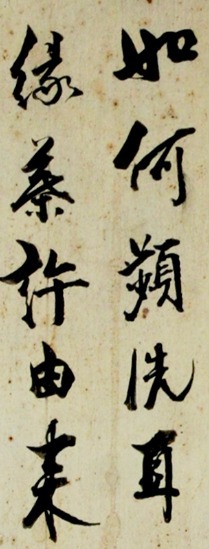 如何頻洗耳
緣慕許由来